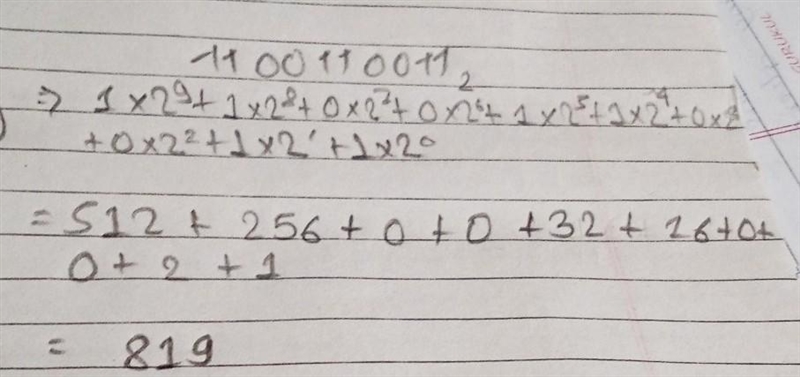 1100110011₂
⇒ 1×2⁹+1×2⁸+0×2⁷+0×2⁶+1×2⁵+1×2⁴+0×2
+0×2²+1×2¹+1×2⁰
= 512 + 256 + 0 + 0 + 32 + 16+0+
0 + 2 + 1
= 819